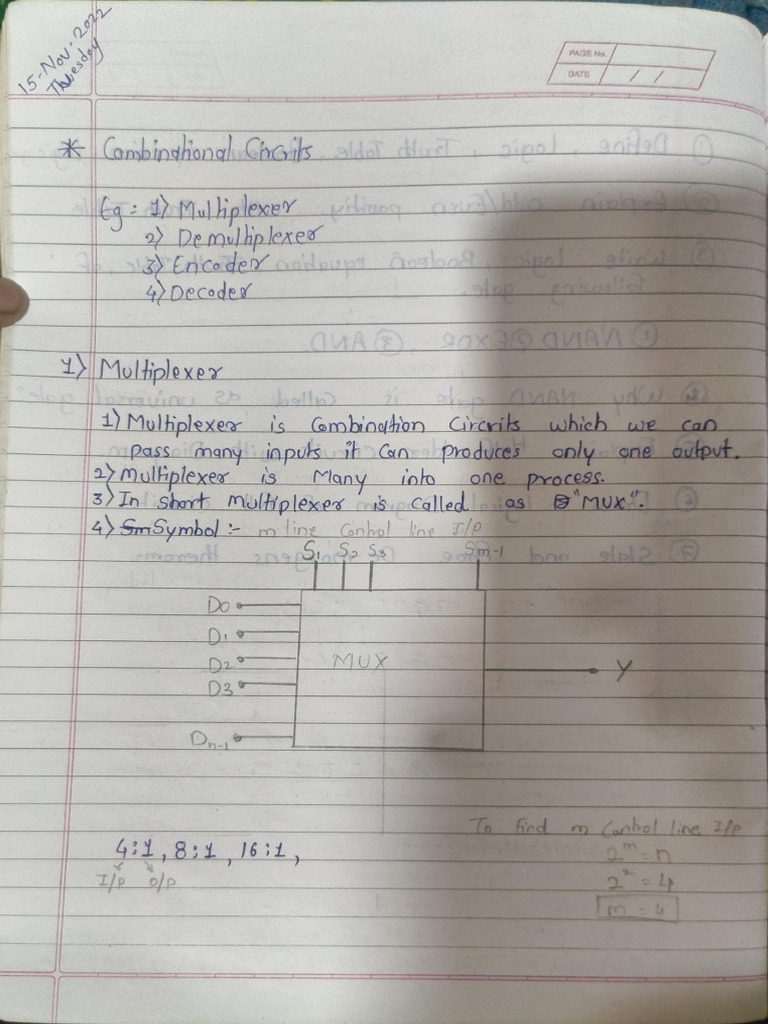 15-Nov-2022
Thuesday
PAGE No.
DATE / /
* Combinational Circrits
Eg = 1) Multiplexer
2) Demultiplexer
3) Encoder
4) Decoder
1) Multiplexer
1) Multiplexer is Combination Circrits which we can
pass many inputs it Can produces only one output.
2) Multiplexer is Many into one process.
3) In short multiplexer is called as "MUX".
4) Symbol :- m line Control line I/P
S1 S2 S3 Sm-1
D0
D1
D2
MUX
Y
D3
Dn-1
To find m Control line I/P
4:1, 8:1, 16:1,
2^m = n
I/P O/P
2^2 = 4
m = 4